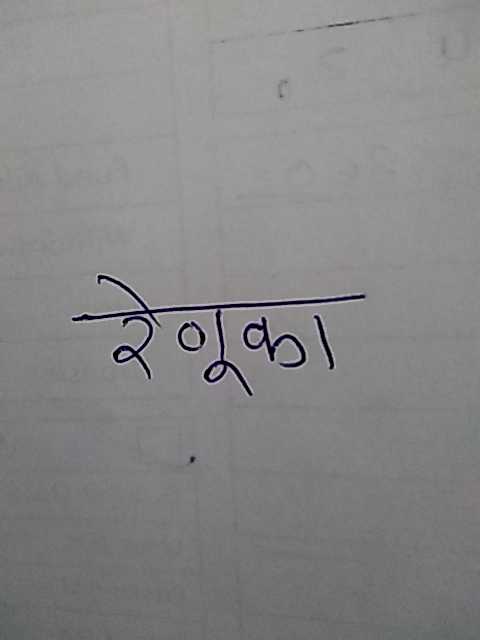 रेणूका